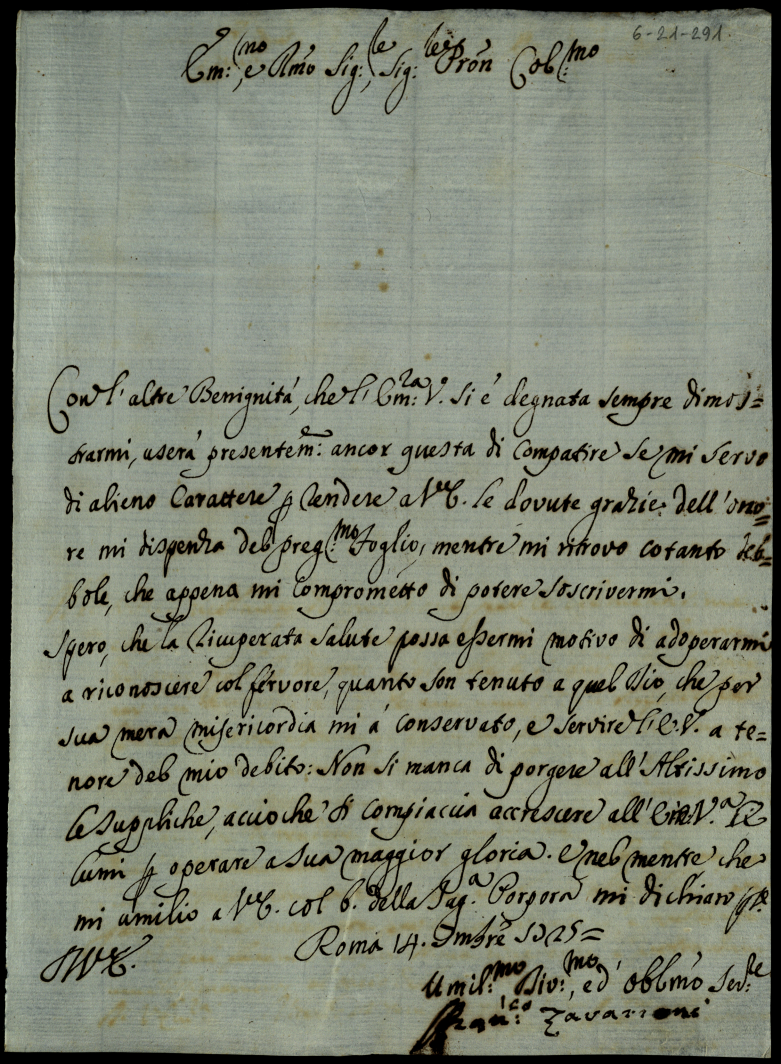 6-21-291.
Em:no, e Rmo Sig:, Sig:le Prõn Col:mo
Con l'altre Benignità, che l'Em:za V. si é degnata sempre dimos=
trarmi, userà presentem:e ancor questa di compatire se mi servo
di alieno Carattere p rendere a VE. le dovute grazie dell'ono=
re mi dispensa del preg:mo Foglio, mentre mi ritrovo cotanto deb=
bole, che appena mi comprometto di potere soscrivermi.
Spero, che la ricuperata salute possa essermi motivo di adoperarmi
a riconoscere col fervore, quanto son tenuto a quel Dio, che per
sua mera misericordia mi á conservato, e servire l'E.V. a te=
nore del mio debito: Non si manca di porgere all'Altissimo
le suppliche, accioche si compiaccia accrescere all' V.a
lumi p operare a sua maggior gloria. E nel mentre che
mi umilio a VE. col b. della Sag:a Porpora mi dichiaro
Roma 14. Xmbrê 1725=
Umil:mo Div:mo, ed' obblmo Ser:re
Zavarroni